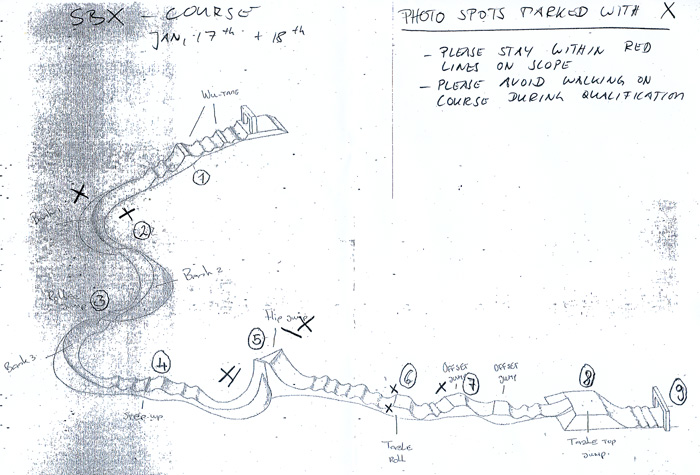 SBX - COURSE
JAN, 17th + 18th
PHOTO SPOTS MARKED WITH X
- PLEASE STAY WITHIN RED
LINES ON SLOPE
- PLEASE AVOID WALKING ON
COURSE DURING QUALIFICATION
WU-TANG
1
X
X
Bank
2
Bank 2
Roller
3
Bank 3
4
Step-up
X
5
Hip Jump
X
X
X
6
Table
Roll
X
OFFSET
Jump
7
OFFSET
Jump
8
Table top
Jump.
9